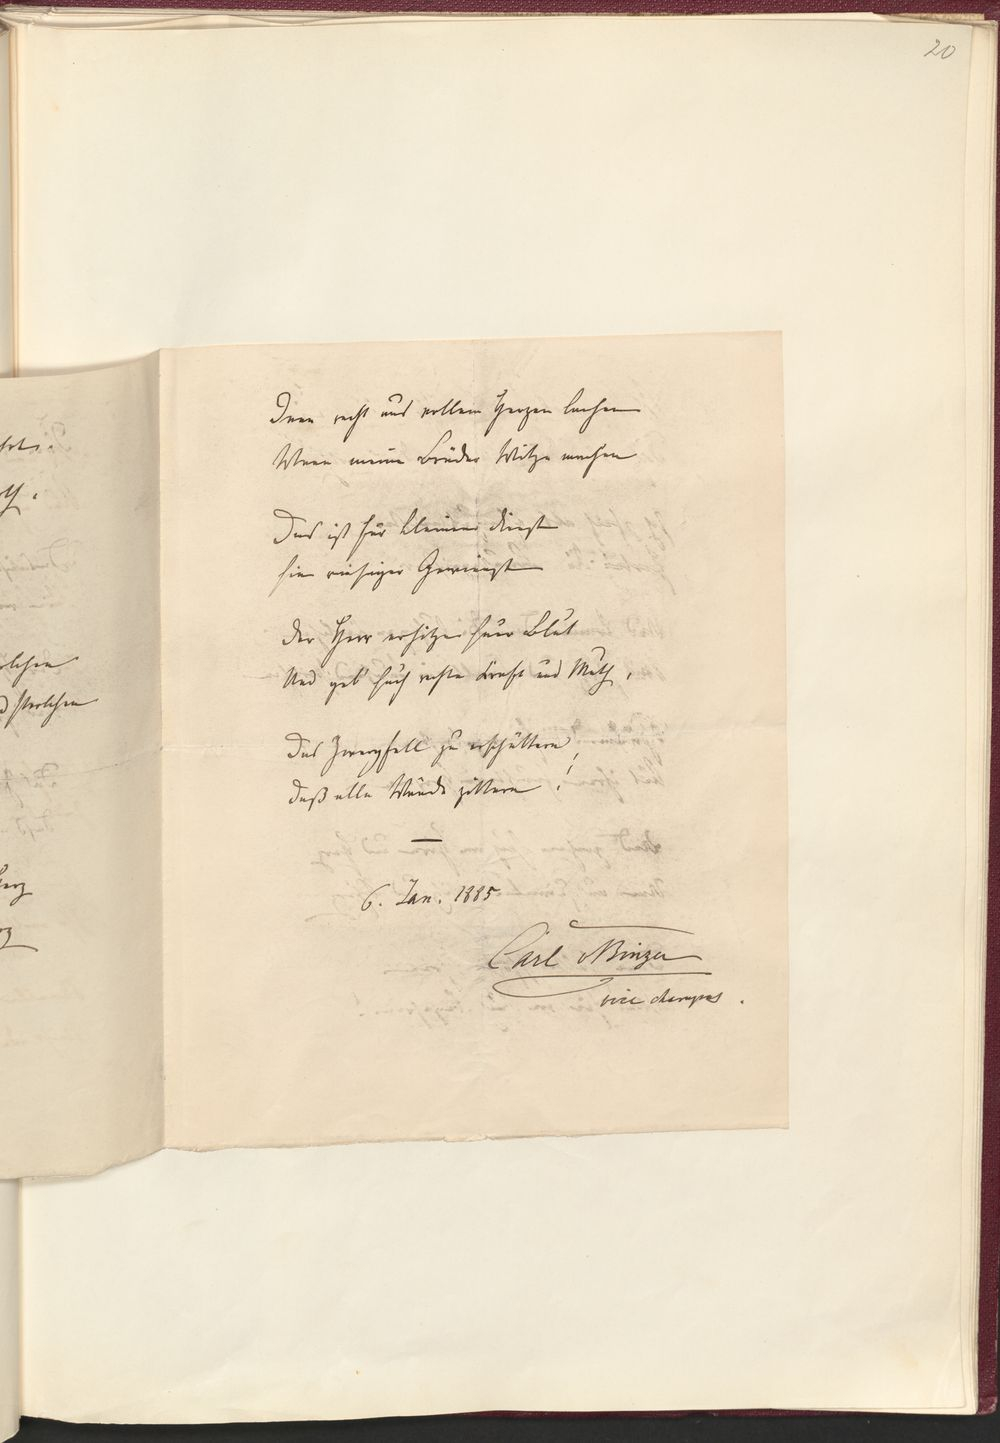 20
Denn recht aus vollem Herzen lachen
Wenn meine Brüder Witze machen
Das ist für kleinen Dienst
Ein riesiger Gewinnst
Der Herr erhitze Euer Blut
Und geb' Euch rechte Kraft und Muth,
Das Zwergfell zu erschüttern,
Daß alle Wände zittern!
6. Jan. 1885
Carl v Binzer
vice